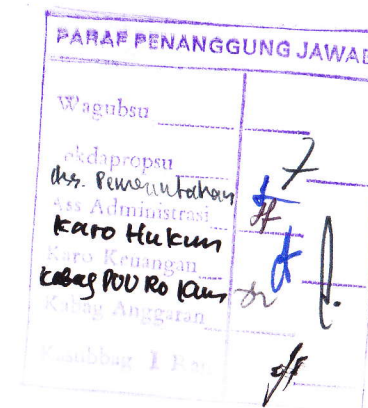 PARAF PENANGGUNG JAWAB
Wagubsu
Sekdapropsu
Ass. Pemerintahan
Ass Administrasi
Karo Hukum
Karo Keuangan
Kabag PUU Ro Kum
Kabag Anggaran
Kasubbag I